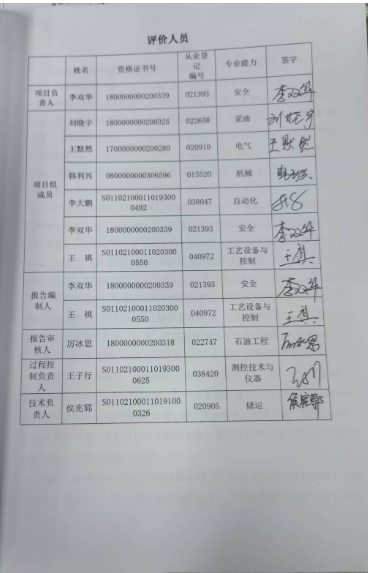 评价人员
姓名 资格证书号 从业登记编号 专业能力 签字
项目负责人 李双华 1800000000200339 021393 安全 李双华
项目组成员 刘晓宇 1800000000200325 022658 采油 刘晓宇
王默然 1700000000200280 020910 电气 王默然
韩利兴 0800000000306596 015520 机械
李大鹏 S011021000110193000492 038047 自动化
李双华 1800000000200339 021393 安全 李双华
王 祺 S011021000110203000550 040972 工艺设备与控制 王祺
报告编制人 李双华 1800000000200339 021393 安全 李双华
王 祺 S011021000110203000550 040972 工艺设备与控制 王祺
报告审核人 厉冰思 1800000000200318 022747 石油工程 厉冰思
过程控制负责人 王子行 S011021000110193000625 038420 测控技术与仪器
技术负责人 侯宪郓 S011021000110191000326 020905 储运